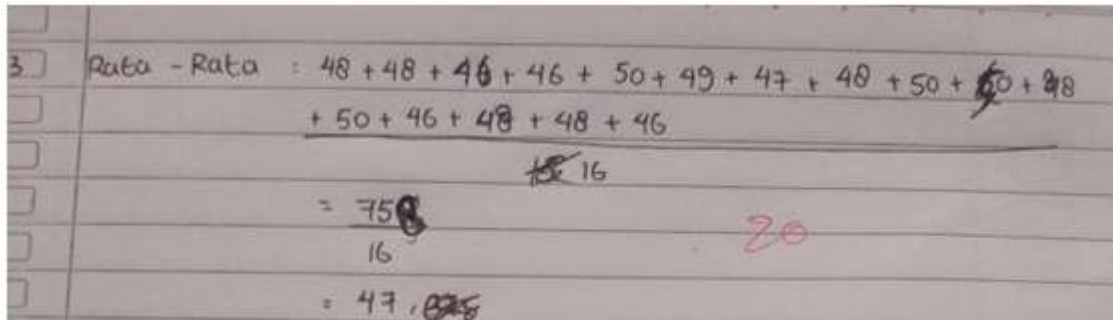 3 Rata - Rata : 48 + 48 + 46 + 46 + 50 + 49 + 47 + 48 + 50 + 50 + 48
+ 50 + 46 + 48 + 48 + 46
16
= 758
16
20
= 47,